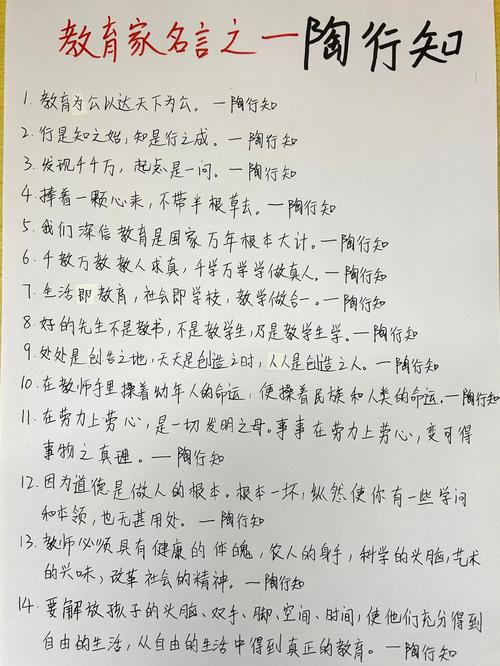 教育家名言之一陶行知
1. 教育为公以达天下为公。—陶行知
2. 行是知之始,知是行之成。—陶行知
3. 发现千千万,起点是一问。—陶行知
4. 捧着一颗心来,不带半根草去。—陶行知
5. 我们深信教育是国家万年根本大计。—陶行知
6. 千教万教教人求真,千学万学学做真人。—陶行知
7. 生活即教育,社会即学校,教学做合一。—陶行知
8. 好的先生不是教书,不是教学生,乃是教学生学。—陶行知
9. 处处是创造之地,天天是创造之时,人人是创造之人。—陶行知
10. 在教师手里操着幼年人的命运,便操着民族和人类的命运。—陶行知
11. 在劳力上劳心,是一切发明之母。事事在劳力上劳心,变可得
事物之真理。—陶行知
12. 因为道德是做人的根本。根本一坏,纵然使你有一些学问
和本领,也无甚用处。—陶行知
13. 教师必须具有健康的体魄,农人的身手,科学的头脑,艺术
的兴味,改革社会的精神。—陶行知
14. 要解放孩子的头脑、双手、脚、空间、时间,使他们充分得到
自由的生活,从自由的生活中得到真正的教育。—陶行知